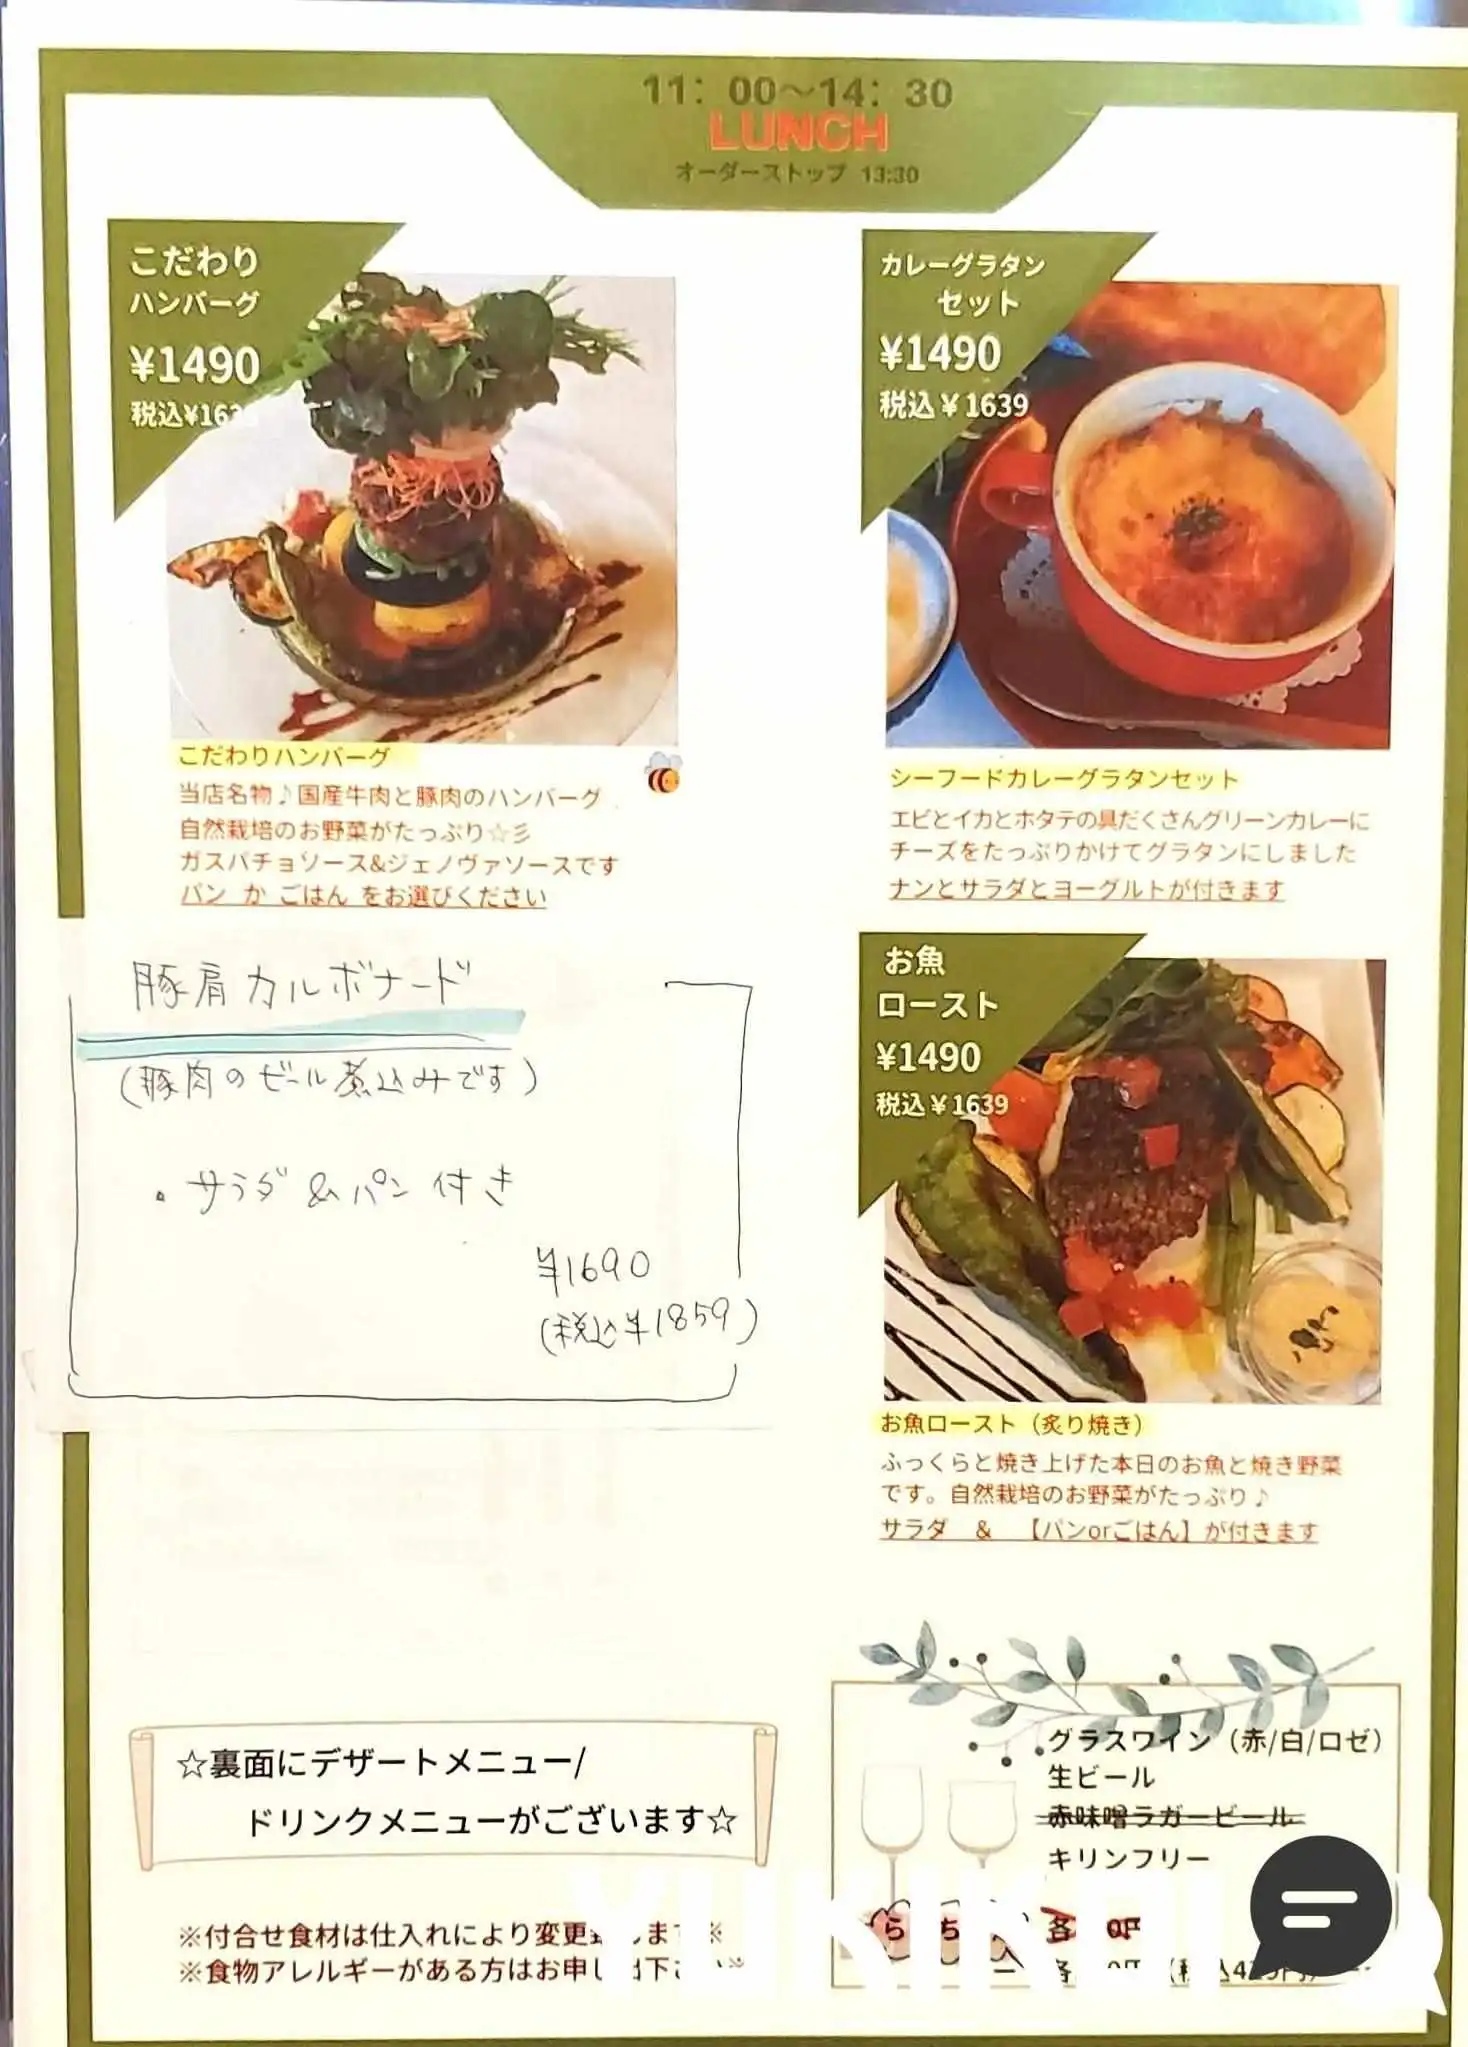 11：00～14：30
LUNCH
オーダーストップ 13:30
こだわり
ハンバーグ
¥1490
税込¥163
カレーグラタン
セット
¥1490
税込¥1639
こだわりハンバーグ
当店名物♪国産牛肉と豚肉のハンバーグ
自然栽培のお野菜がたっぷり☆彡
ガスパチョソース&ジェノヴァソースです
パン か ごはん をお選びください
シーフードカレーグラタンセット
エビとイカとホタテの具だくさんグリーンカレーに
チーズをたっぷりかけてグラタンにしました
ナンとサラダとヨーグルトが付きます
豚肩カルボナード
(豚肉のビール煮込みです)
・サラダ&パン付き
¥1690
(税込¥1859)
お魚
ロースト
¥1490
税込¥1639
お魚ロースト（炙り焼き）
ふっくらと焼き上げた本日のお魚と焼き野菜
です。自然栽培のお野菜がたっぷり♪
サラダ & 【パンorごはん】が付きます
☆裏面にデザートメニュー/
ドリンクメニューがございます☆
グラスワイン（赤/白/ロゼ）
生ビール
赤味噌ラガービール
キリンフリー
※付合せ食材は仕入れにより変更
※食物アレルギーがある方はお申し